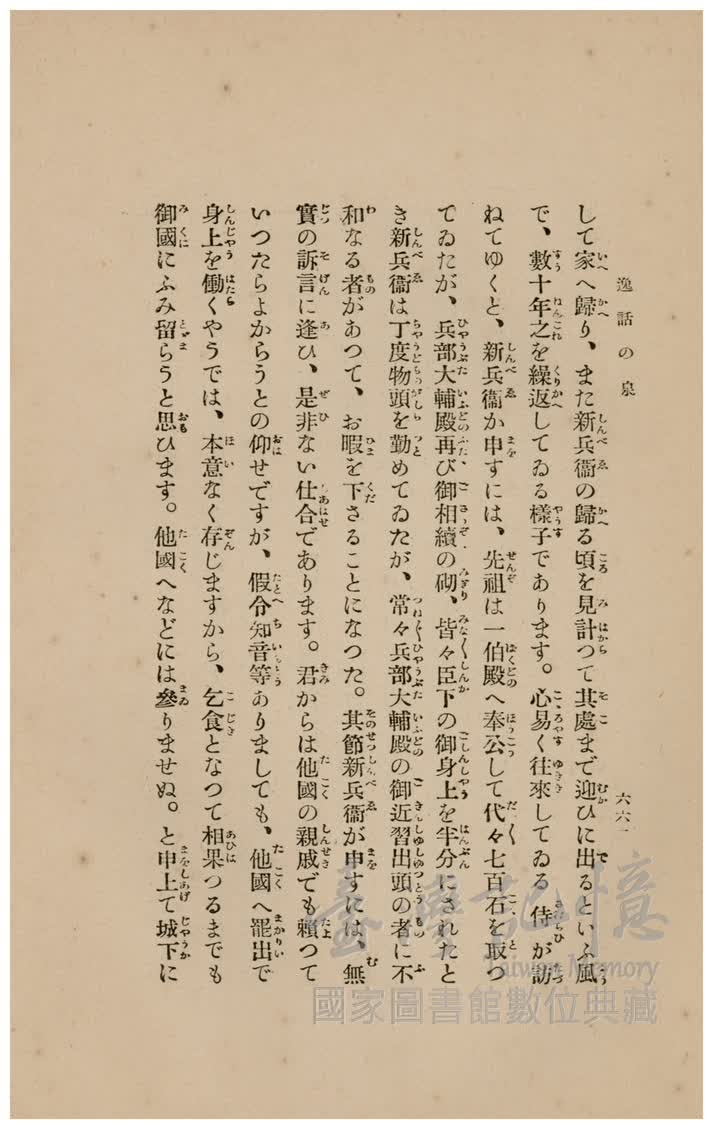 逸話の泉
六六一
して家へ歸り、また新兵衞の歸る頃を見計つて其處まで迎ひに出るといふ風
で、數十年之を繰返してゐる樣子であります。心易く往來してゐる侍が訪
ねてゆくと、新兵衞か申すには、先祖は一伯殿へ奉公して代々七百石を取つ
てゐたが、兵部大輔殿再び御相續の砌、皆々臣下の御身上を半分にされたと
き新兵衞は丁度物頭を勤めてゐたが、常々兵部大輔殿の御近習出頭の者に不
和なる者があつて、お暇を下さることになつた。其節新兵衞が申すには、無
實の訴言に逢ひ、是非ない仕合であります。君からは他國の親戚でも賴つて
いつたらよからうとの仰せですが、假令知音等ありましても、他國へ罷出で
身上を働くやうでは、本意なく存じますから、乞食となつて相果つるまでも
御國にふみ留らうと思ひます。他國へなどには參りませぬ。と申上て城下に
臺灣記憶
Taiwan Memory
國家圖書館數位典藏